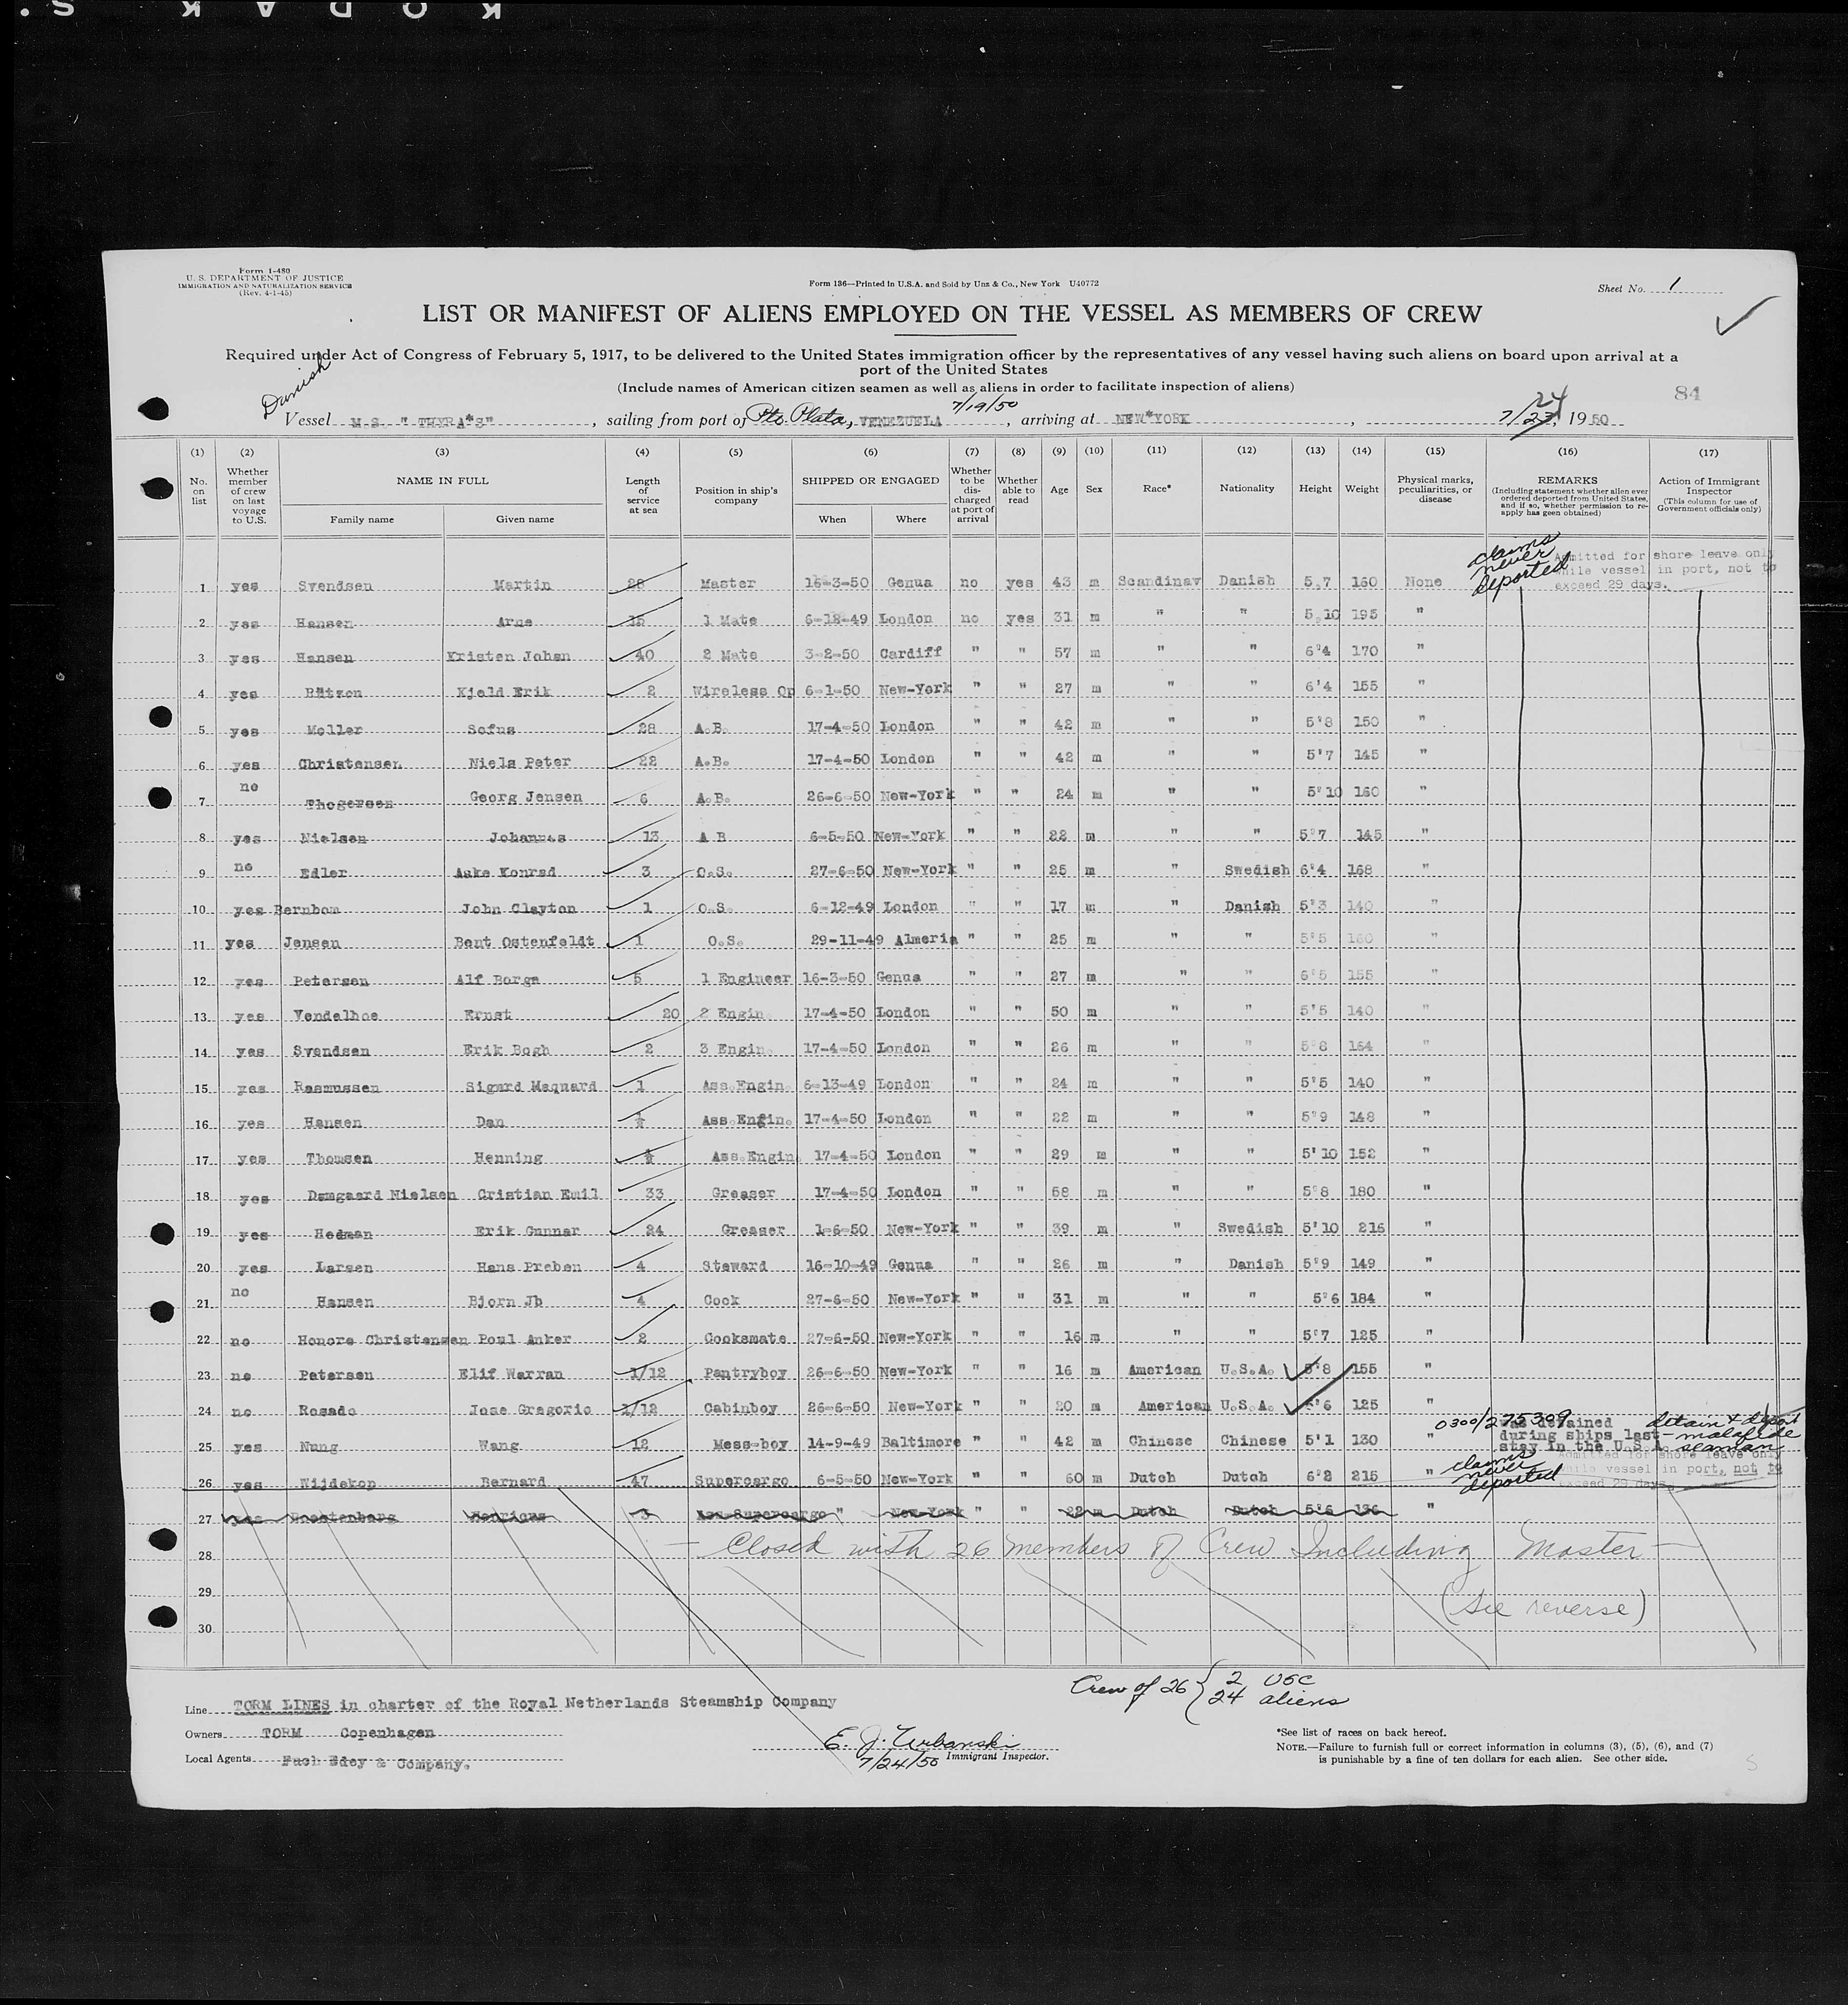 KODAK S.
Form I-480
U. S. DEPARTMENT OF JUSTICE
IMMIGRATION AND NATURALIZATION SERVICE
(Rev. 4-1-45)
Form 136—Printed in U.S.A. and Sold by Unz & Co., New York U40772
Sheet No. 1
LIST OR MANIFEST OF ALIENS EMPLOYED ON THE VESSEL AS MEMBERS OF CREW
Required under Act of Congress of February 5, 1917, to be delivered to the United States immigration officer by the representatives of any vessel having such aliens on board upon arrival at a
port of the United States
(Include names of American citizen seamen as well as aliens in order to facilitate inspection of aliens)
84
Danish
Vessel M.S. "THYRA*S", sailing from port of Pto Plata, VENEZUELA 7/19/50, arriving at NEW*YORK, 7/23 24, 1950
(1) (2) (3) (4) (5) (6) (7) (8) (9) (10) (11) (12) (13) (14) (15) (16) (17)
No. on list
Whether member of crew on last voyage to U.S.
NAME IN FULL
Family name Given name
Length of service at sea
Position in ship's company
SHIPPED OR ENGAGED
When Where
Whether to be discharged at port of arrival
Whether able to read
Age Sex Race* Nationality Height Weight
Physical marks, peculiarities, or disease
REMARKS
(Including statement whether alien ever ordered deported from United States, and if so, whether permission to reapply has been obtained)
Action of Immigrant Inspector
(This column for use of Government officials only)
claims never deported
Admitted for shore leave only
while vessel in port, not to
exceed 29 days.
1 yes Svendsen Martin 28 Master 16-3-50 Genua no yes 43 m Scandinav Danish 5,7 160 None
2 yes Hansen Arne 15 1 Mate 6-12-49 London no yes 31 m " " 5,10 195 "
3 yes Hansen Kristen Johan 40 2 Mate 3-2-50 Cardiff " " 57 m " " 6'4 170 "
4 yes Bätzon Kjeld Erik 2 Wireless Op 6-1-50 New-York " " 27 m " " 6'4 155 "
5 yes Moller Sofus 28 A.B. 17-4-50 London " " 42 m " " 5'8 150 "
6 yes Christensen Niels Peter 22 A.B. 17-4-50 London " " 42 m " " 5'7 145 "
7 no Thogersen Georg Jensen 6 A.B. 26-6-50 New-York " " 24 m " " 5'10 160 "
8 yes Nielsen Johannes 13 A B 6-5-50 New-York " " 22 m " " 5'7 145 "
9 no Edler Aake Konrad 3 O.S. 27-6-50 New-York " " 25 m " Swedish 6'4 168 "
10 yes Bernbom John Clayton 1 O.S. 6-12-49 London " " 17 m " Danish 5'3 140 "
11 yes Jensen Bent Ostenfeldt 1 O.S. 29-11-49 Almeria " " 25 m " " 5'5 160 "
12 yes Petersen Alf Borge 5 1 Engineer 16-3-50 Genua " " 27 m " " 6'5 155 "
13 yes Vendelhoe Ernst 20 2 Engin. 17-4-50 London " " 50 m " " 5'5 140 "
14 yes Svendsen Erik Bogh 2 3 Engin. 17-4-50 London " " 26 m " " 5'8 164 "
15 yes Rasmussen Sigurd Maquard 1 Ass.Engin. 6-13-49 London " " 24 m " " 5'5 140 "
16 yes Hansen Dan Ass.Engin. 17-4-50 London " " 22 m " " 5'9 148 "
17 yes Thomsen Henning Ass.Engin. 17-4-50 London " " 29 m " " 5'10 152 "
18 yes Damgaard Nielsen Cristian Emil 33 Greaser 17-4-50 London " " 58 m " " 5'8 180 "
19 yes Hedman Erik Gunnar 24 Greaser 1-6-50 New-York " " 39 m " Swedish 5'10 216 "
20 yes Larsen Hans Preben 4 Steward 16-10-49 Genua " " 26 m " Danish 5'9 149 "
21 no Hansen Bjorn Jb 4 Cook 27-6-50 New-York " " 31 m " " 5'6 184 "
22 no Honore Christensen Poul Anker 2 Cooksmate 27-6-50 New-York " " 16 m " " 5'7 125 "
23 no Petersen Elif Warran 1/12 Pantryboy 26-6-50 New-York " " 16 m American U.S.A. 5'8 155 "
24 no Rosado Jose Gregorio 1/12 Cabinboy 26-6-50 New-York " " 20 m American U.S.A. 5'6 125 "
0300/275309
25 yes Nung Wang 12 Mess-boy 14-9-49 Baltimore " " 42 m Chinese Chinese 5'1 130 " was detained during ships last stay in the U.S.A. detain & deport - malafide seaman
26 yes Wijdekop Bernard 47 Supercargo 6-5-50 New-York " " 60 m Dutch Dutch 6'2 215 " claims never deported
Admitted for shore leave only
while vessel in port, not to
exceed 29 days.
27 yes Henricus 3 Ass Supercargo " New-York " " 22 m Dutch Dutch 5'6 136 "
28 — Closed with 26 members of Crew Including Master —
29 (See reverse)
30
Crew of 26 { 2 USC
24 aliens
Line TORM LINES in charter of the Royal Netherlands Steamship Company
Owners TORM Copenhagen
Local Agents Fuch Edey & Company.
E. J. Urbanski
7/24/50 Immigrant Inspector.
*See list of races on back hereof.
NOTE.—Failure to furnish full or correct information in columns (3), (5), (6), and (7)
is punishable by a fine of ten dollars for each alien. See other side.